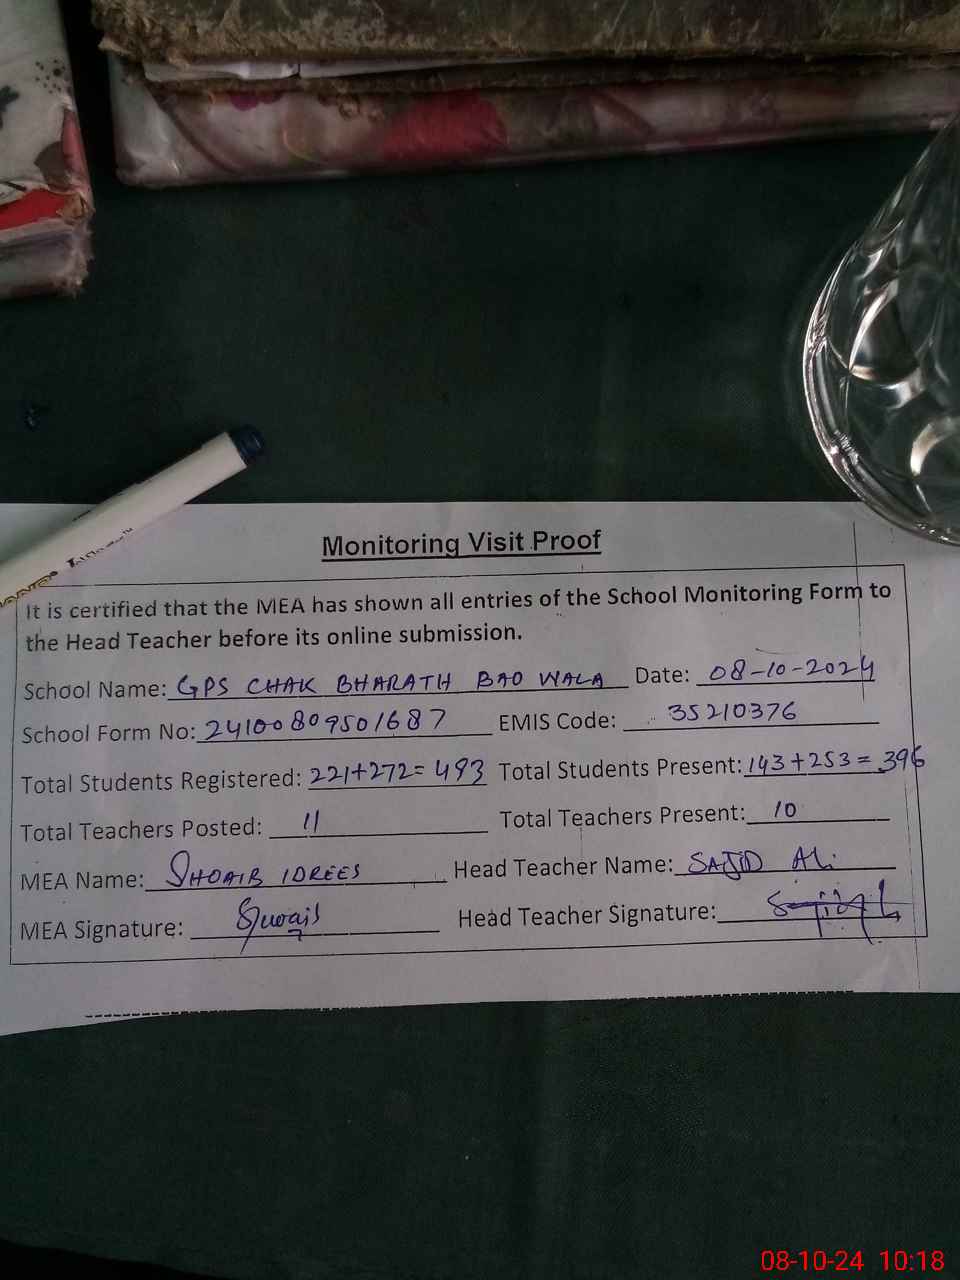 Monitoring Visit Proof
It is certified that the MEA has shown all entries of the School Monitoring Form to
the Head Teacher before its online submission.
School Name: GPS CHAK BHARATH BAO WALA Date: 08-10-2024
School Form No: 24100809501687 EMIS Code: 35210376
Total Students Registered: 221+272=493 Total Students Present: 143+253=396
Total Teachers Posted: 11 Total Teachers Present: 10
MEA Name: SHOAIB IDREES Head Teacher Name: SAJID Ali
MEA Signature: Head Teacher Signature:
08-10-24 10:18